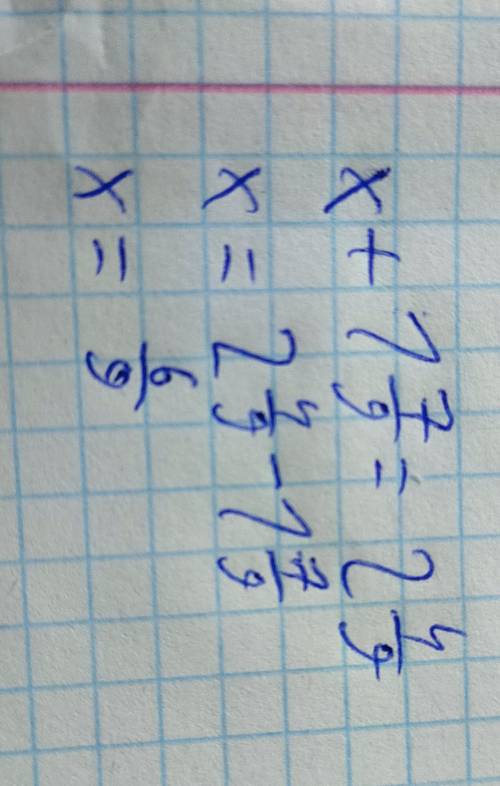 x + 1 7/9 = 2 4/9
x = 2 4/9 - 1 7/9
x = 6/9